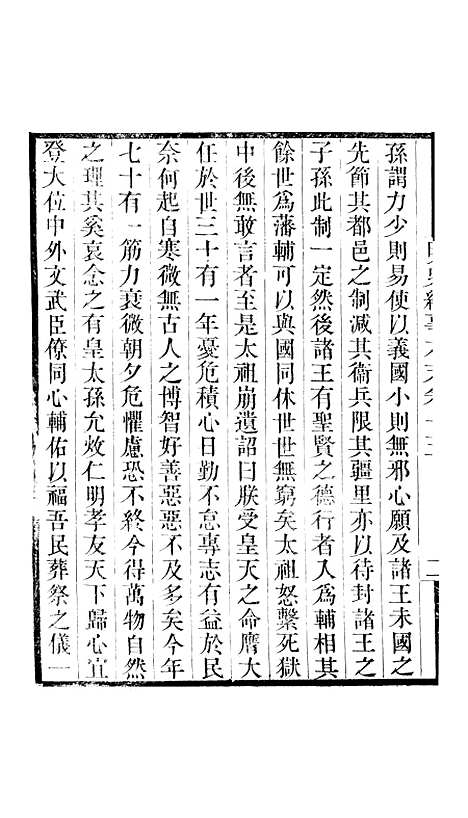 孫謂力少則易使以義國小則無邪心願及諸王未國之
先節其都邑之制減其衞兵限其疆里亦以待封諸王之
子孫此制一定然後諸王有聖賢之德行者入爲輔相其
餘世爲藩輔可以與國同休世世無窮矣太祖怒繫死獄
中後無敢言者至是太祖崩遺詔曰朕受皇天之命膺大
任於世三十有一年憂危積心日勤不怠專志有益於民
奈何起自寒微無古人之博智好善惡惡不及多矣今年
七十有一筋力衰微朝夕危懼慮恐不終今得萬物自然
之理其奚哀念之有皇太孫允炆仁明孝友天下歸心宜
登大位中外文武臣僚同心輔佑以福吾民葬祭之儀一